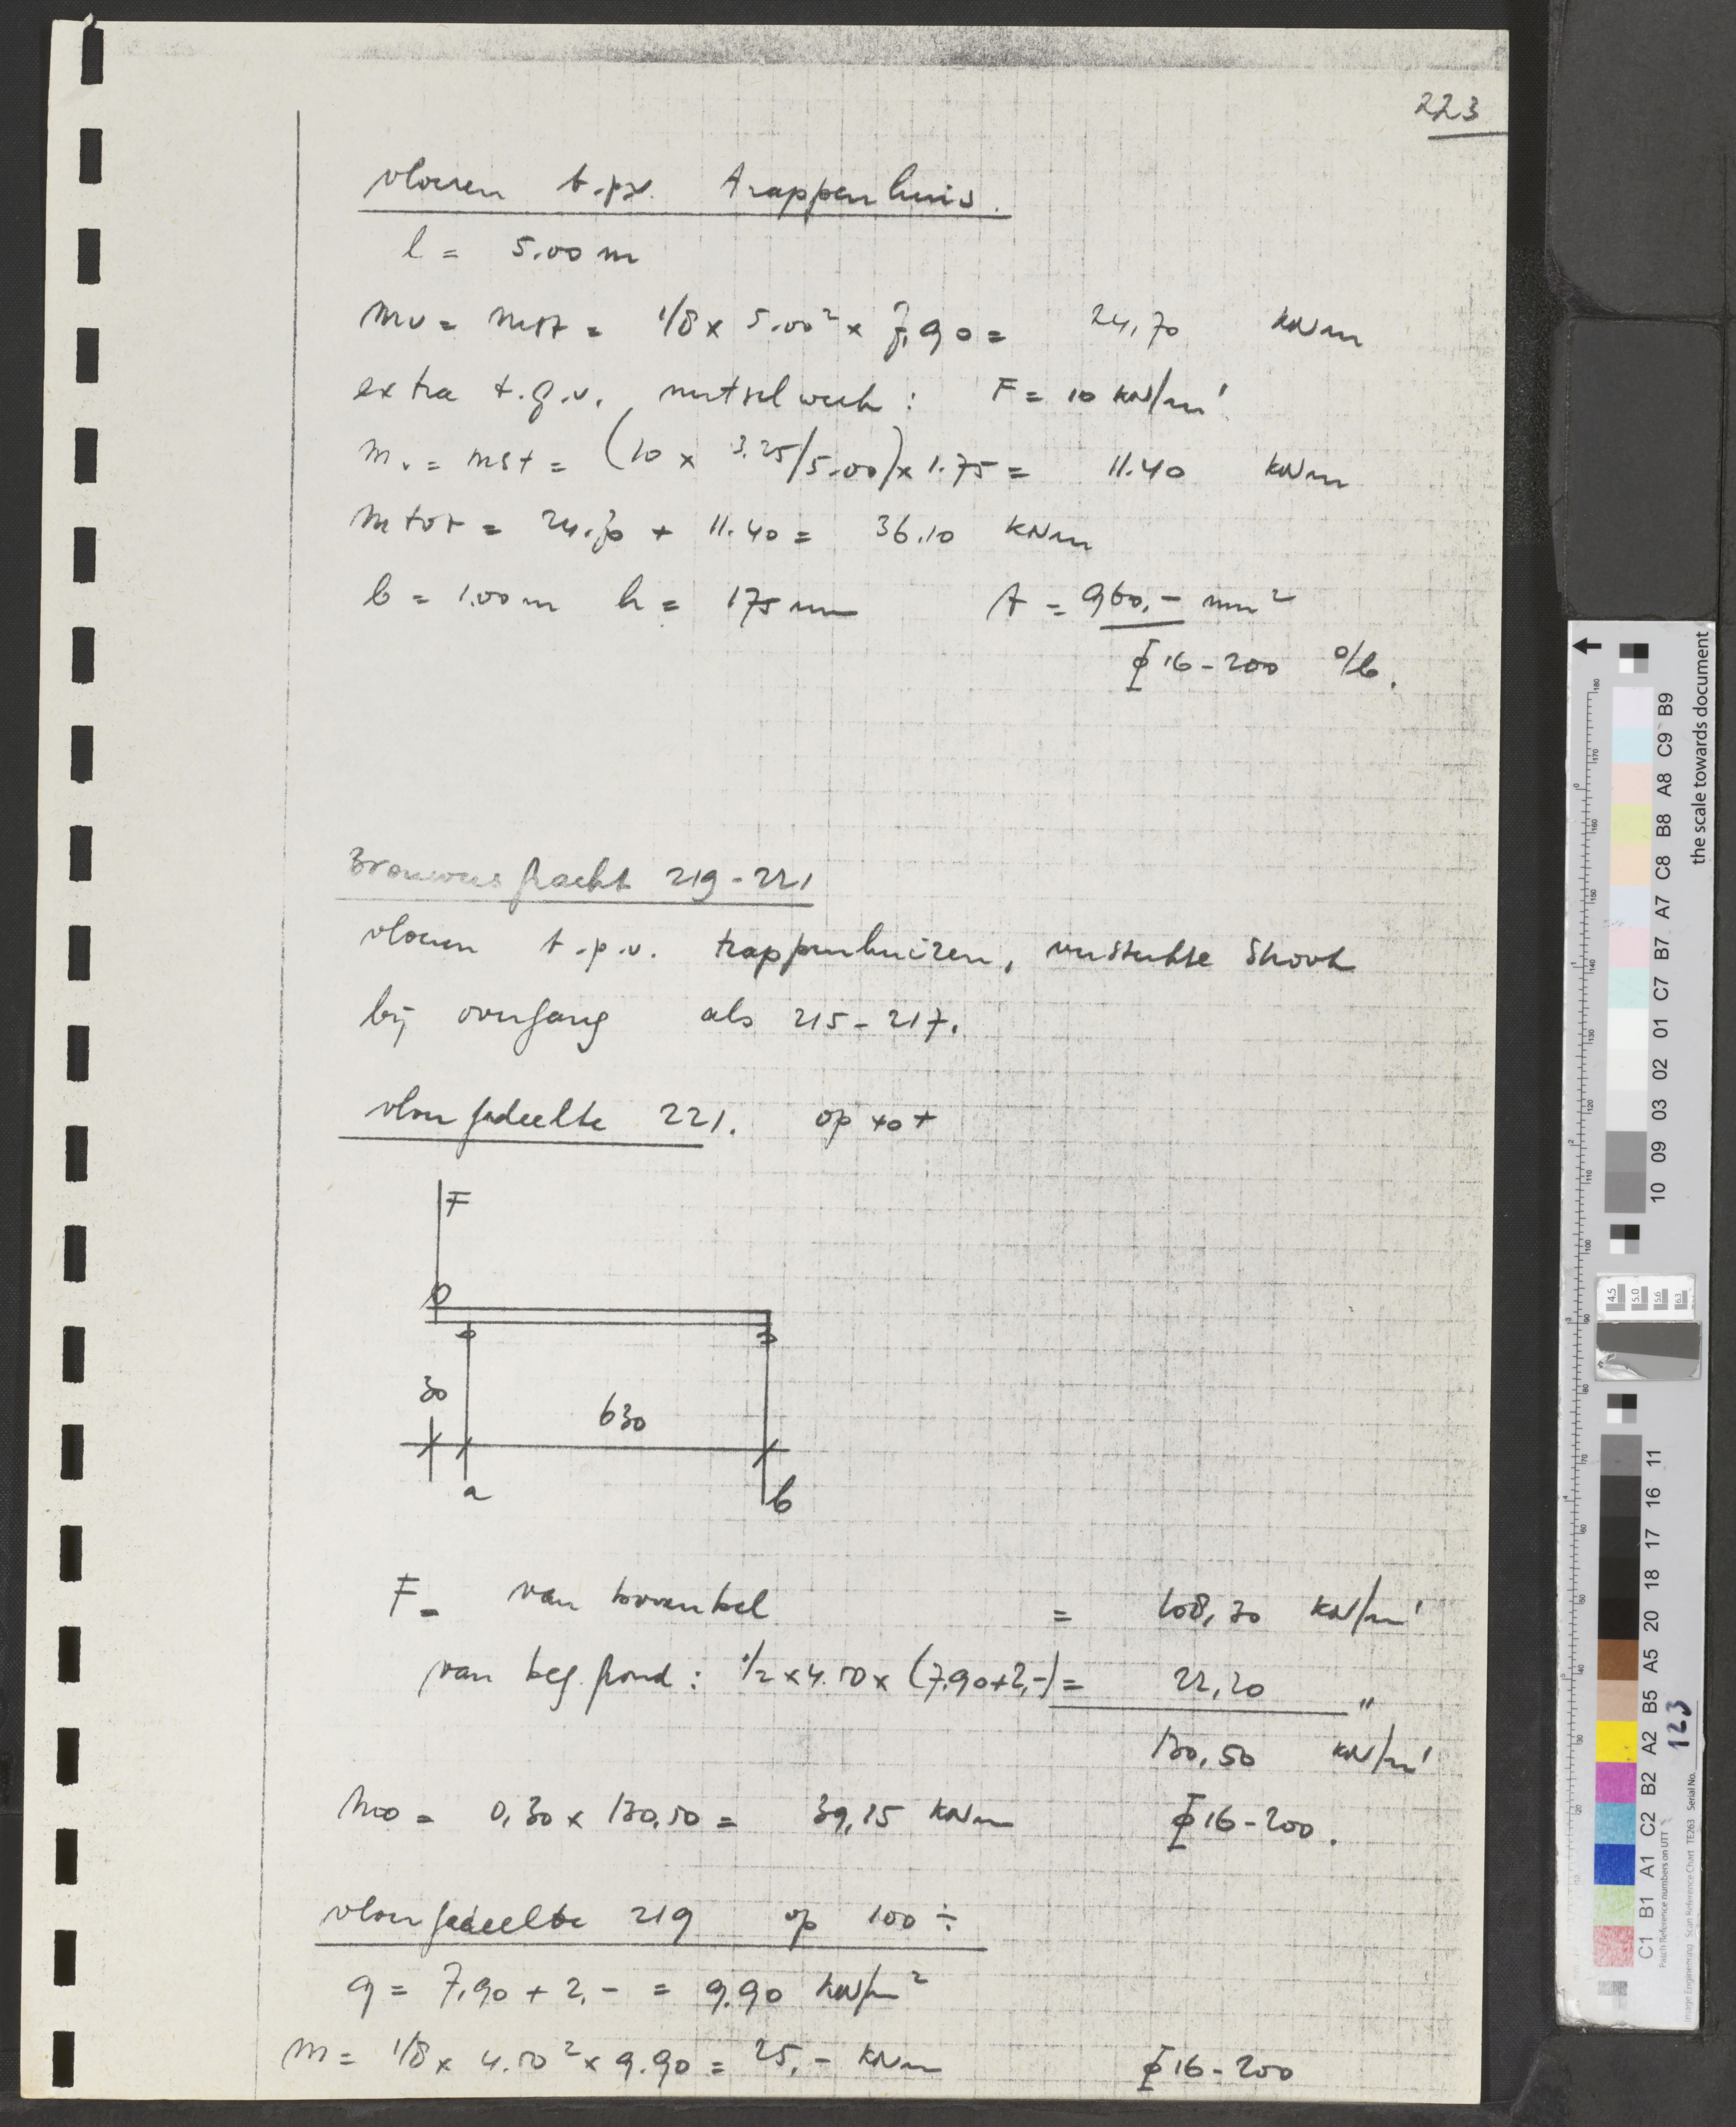 223
vloeren t.p.v. trappenhuis.
l = 5.00 m
mv = mst = 1/8 x 5.00² x 7,90 = 24,70 kNm
extra t.g.v. metselwerk: F = 10 kN/m'
mv = mst = (10 x 3.25/5.00) x 1.75 = 11.40 kNm
mtot = 24.70 + 11.40 = 36.10 kNm
b = 1.00 m h = 175 mm A = 960,- mm²
ϕ 16-200 o/b.
Brouwersgracht 219-221
vloeren t.p.v. trappenhuizen, versterkte strook
bij overgang als 215-217.
vloergedeelte 221. op +0+
F
30
630
a
b
F = van bovenbel = 108,30 kN/m'
van beg. grond: 1/2 x 4.50 x (7,90+2,-) = 22,20 "
130,50 kN/m'
mo = 0,30 x 130,50 = 39,15 kNm ϕ 16-200.
vloergedeelte 219 op 100 ÷
q = 7,90 + 2,- = 9.90 kN/m²
m = 1/8 x 4.50² x 9.90 = 25,- kNm ϕ 16-200
the scale towards document
C1 B1 A1 C2 B2 A2 B5 A5 20 18 17 16 11
10 09 03 02 01 C7 B7 A7 C8 B8 A8 C9 B9
Patch Reference numbers on UTT
Image Engineering Scan Reference Chart TE263 Serial No. 123